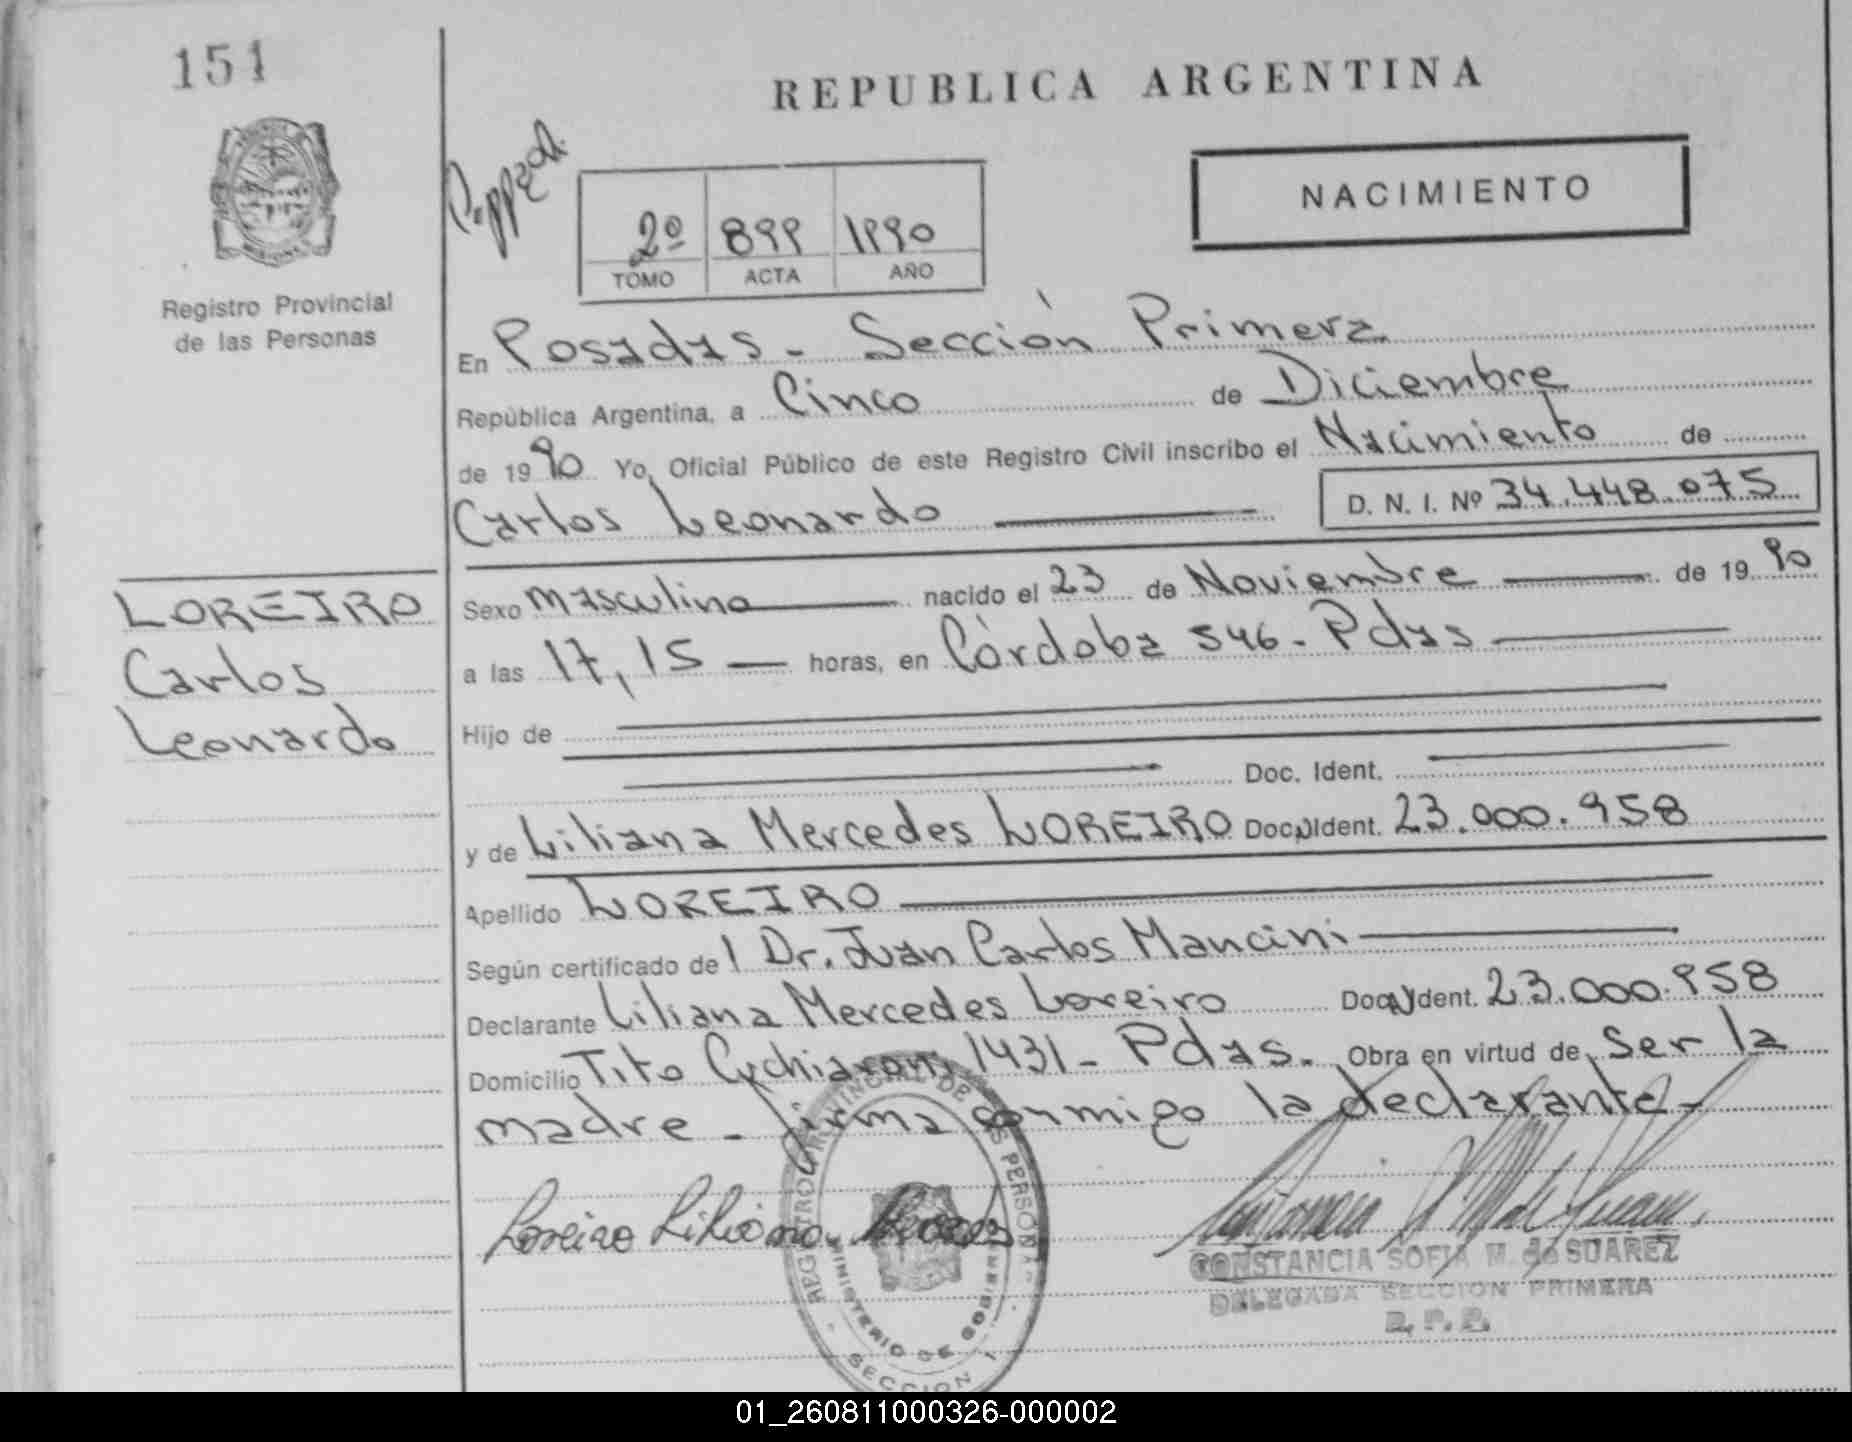 151
REPUBLICA ARGENTINA
NACIMIENTO
2º 899 1990
TOMO ACTA AÑO
Registro Provincial
de las Personas
En Posadas - Sección Primera
República Argentina, a Cinco de Diciembre
de 1990 Yo, Oficial Público de este Registro Civil inscribo el Nacimiento de
Carlos Leonardo D. N. I. Nº 34.448.075
LOREIRO
Carlos
Leonardo
Sexo Masculino nacido el 23 de Noviembre de 1990
a las 17,15 horas, en Córdoba 546 - Pdas
Hijo de
Doc. Ident.
y de Liliana Mercedes LOREIRO Doc. Ident. 23.000.958
Apellido LOREIRO
Según certificado del Dr. Juan Carlos Mancini
Declarante Liliana Mercedes Loreiro Doc. Ident. 23.000.958
Domicilio Tito 1431 - Pdas. Obra en virtud de Ser la
madre - firma conmigo la declarante -
Loreiro Liliana Mercedes
REGISTRO PROVINCIAL DE LAS PERSONAS
MINISTERIO DE GOBIERNO
SECCION 1
CONSTANCIA SOFIA M. de SUAREZ
DELEGADA SECCION PRIMERA
R. P. P.
01_260811000326-000002